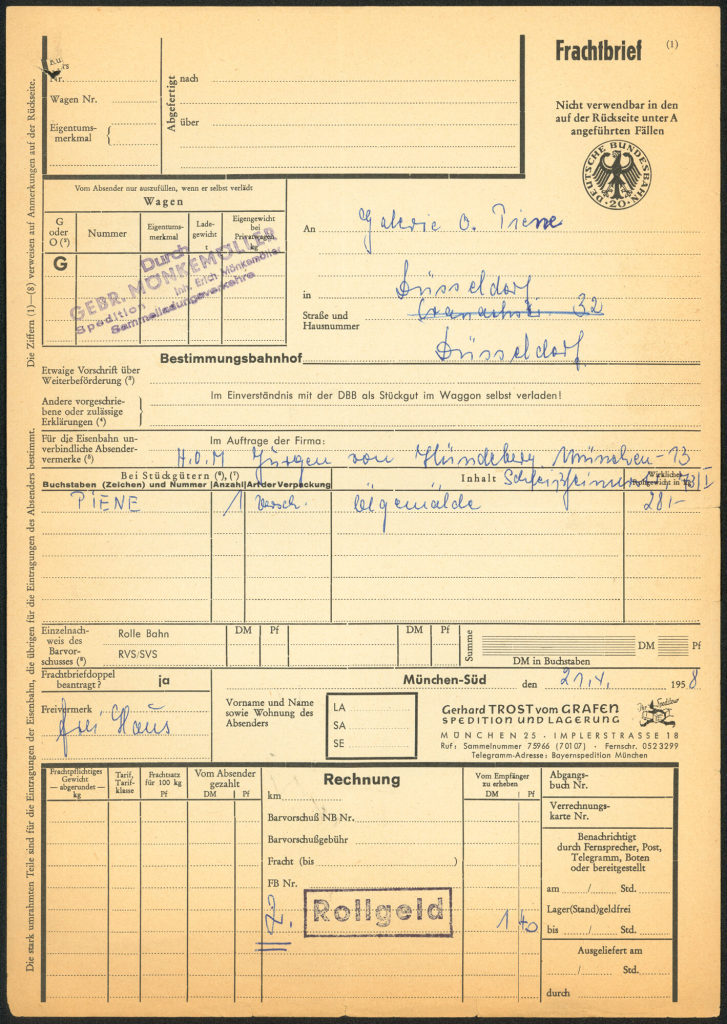 Frachtbrief (1)
Nr.
Wagen Nr.
Eigentums-
merkmal
Abgefertigt
nach
über
Nicht verwendbar in den
auf der Rückseite unter A
angeführten Fällen
DEUTSCHE BUNDESBAHN
·20·
Vom Absender nur auszufüllen, wenn er selbst verlädt
Wagen
G
oder
O (³)
Nummer
Eigentums-
merkmal
Lade-
gewicht
t
Eigengewicht
bei
Privatwagen
kg
G
Durch
GEBR. MÖNKEMÖLLER
Spedition Inh. Erich Mönkemöller
Sammelladungsverkehre
An Galerie O. Piene
in Düsseldorf
Straße und
Hausnummer
32
Bestimmungsbahnhof Düsseldorf
Etwaige Vorschrift über
Weiterbeförderung (³)
Andere vorgeschrie-
bene oder zulässige
Erklärungen (⁴)
Im Einverständnis mit der DBB als Stückgut im Waggon selbst verladen!
Für die Eisenbahn un-
verbindliche Absender-
vermerke (⁵)
Im Auftrage der Firma:
H.O.M Jürgen von Hündeberg München-13
Bei Stückgütern (⁶), (⁷)
Buchstaben (Zeichen) und Nummer
Anzahl
Art der Verpackung
Inhalt
Wirkliches
PIENE 1 Versch. Ölgemälde 28,-
Einzelnach-
weis des
Barvor-
schusses (⁸)
Rolle Bahn
RVS/SVS
DM Pf
DM Pf
Summe
DM Pf
DM in Buchstaben
Frachtbriefdoppel
beantragt? ja
München-Süd den 21.4. 1958.
Freivermerk
frei Haus
Vorname und Name
sowie Wohnung des
Absenders
LA
SA
SE
Gerhard TROST vom GRAFEN
SPEDITION UND LAGERUNG
Ihr Spediteur
MÜNCHEN 25 · IMPLERSTRASSE 18
Ruf: Sammelnummer 75966 (70107) · Fernschr. 0523299
Telegramm-Adresse: Bayernspedition München
Frachtpflichtiges
Gewicht
— abgerundet —
kg
Tarif,
Tarif-
klasse
Frachtsatz
für 100 kg
Pf
Vom Absender
gezahlt
DM Pf
Rechnung
km
Barvorschuß NB Nr.
Barvorschußgebühr
Fracht (bis )
FB Nr.
Rollgeld
Vom Empfänger
zu erheben
DM Pf
1 40
Abgangs-
buch Nr.
Verrechnungs-
karte Nr.
Benachrichtigt
durch Fernsprecher, Post,
Telegramm, Boten
oder bereitgestellt
am / Std.
Lager(Stand)geldfrei
bis / Std.
Ausgeliefert am
/ Std.
durch
Die stark umrahmten Teile sind für die Eintragungen der Eisenbahn, die übrigen für die Eintragungen des Absenders bestimmt.
Die Ziffern (1)—(8) verweisen auf Anmerkungen auf der Rückseite.